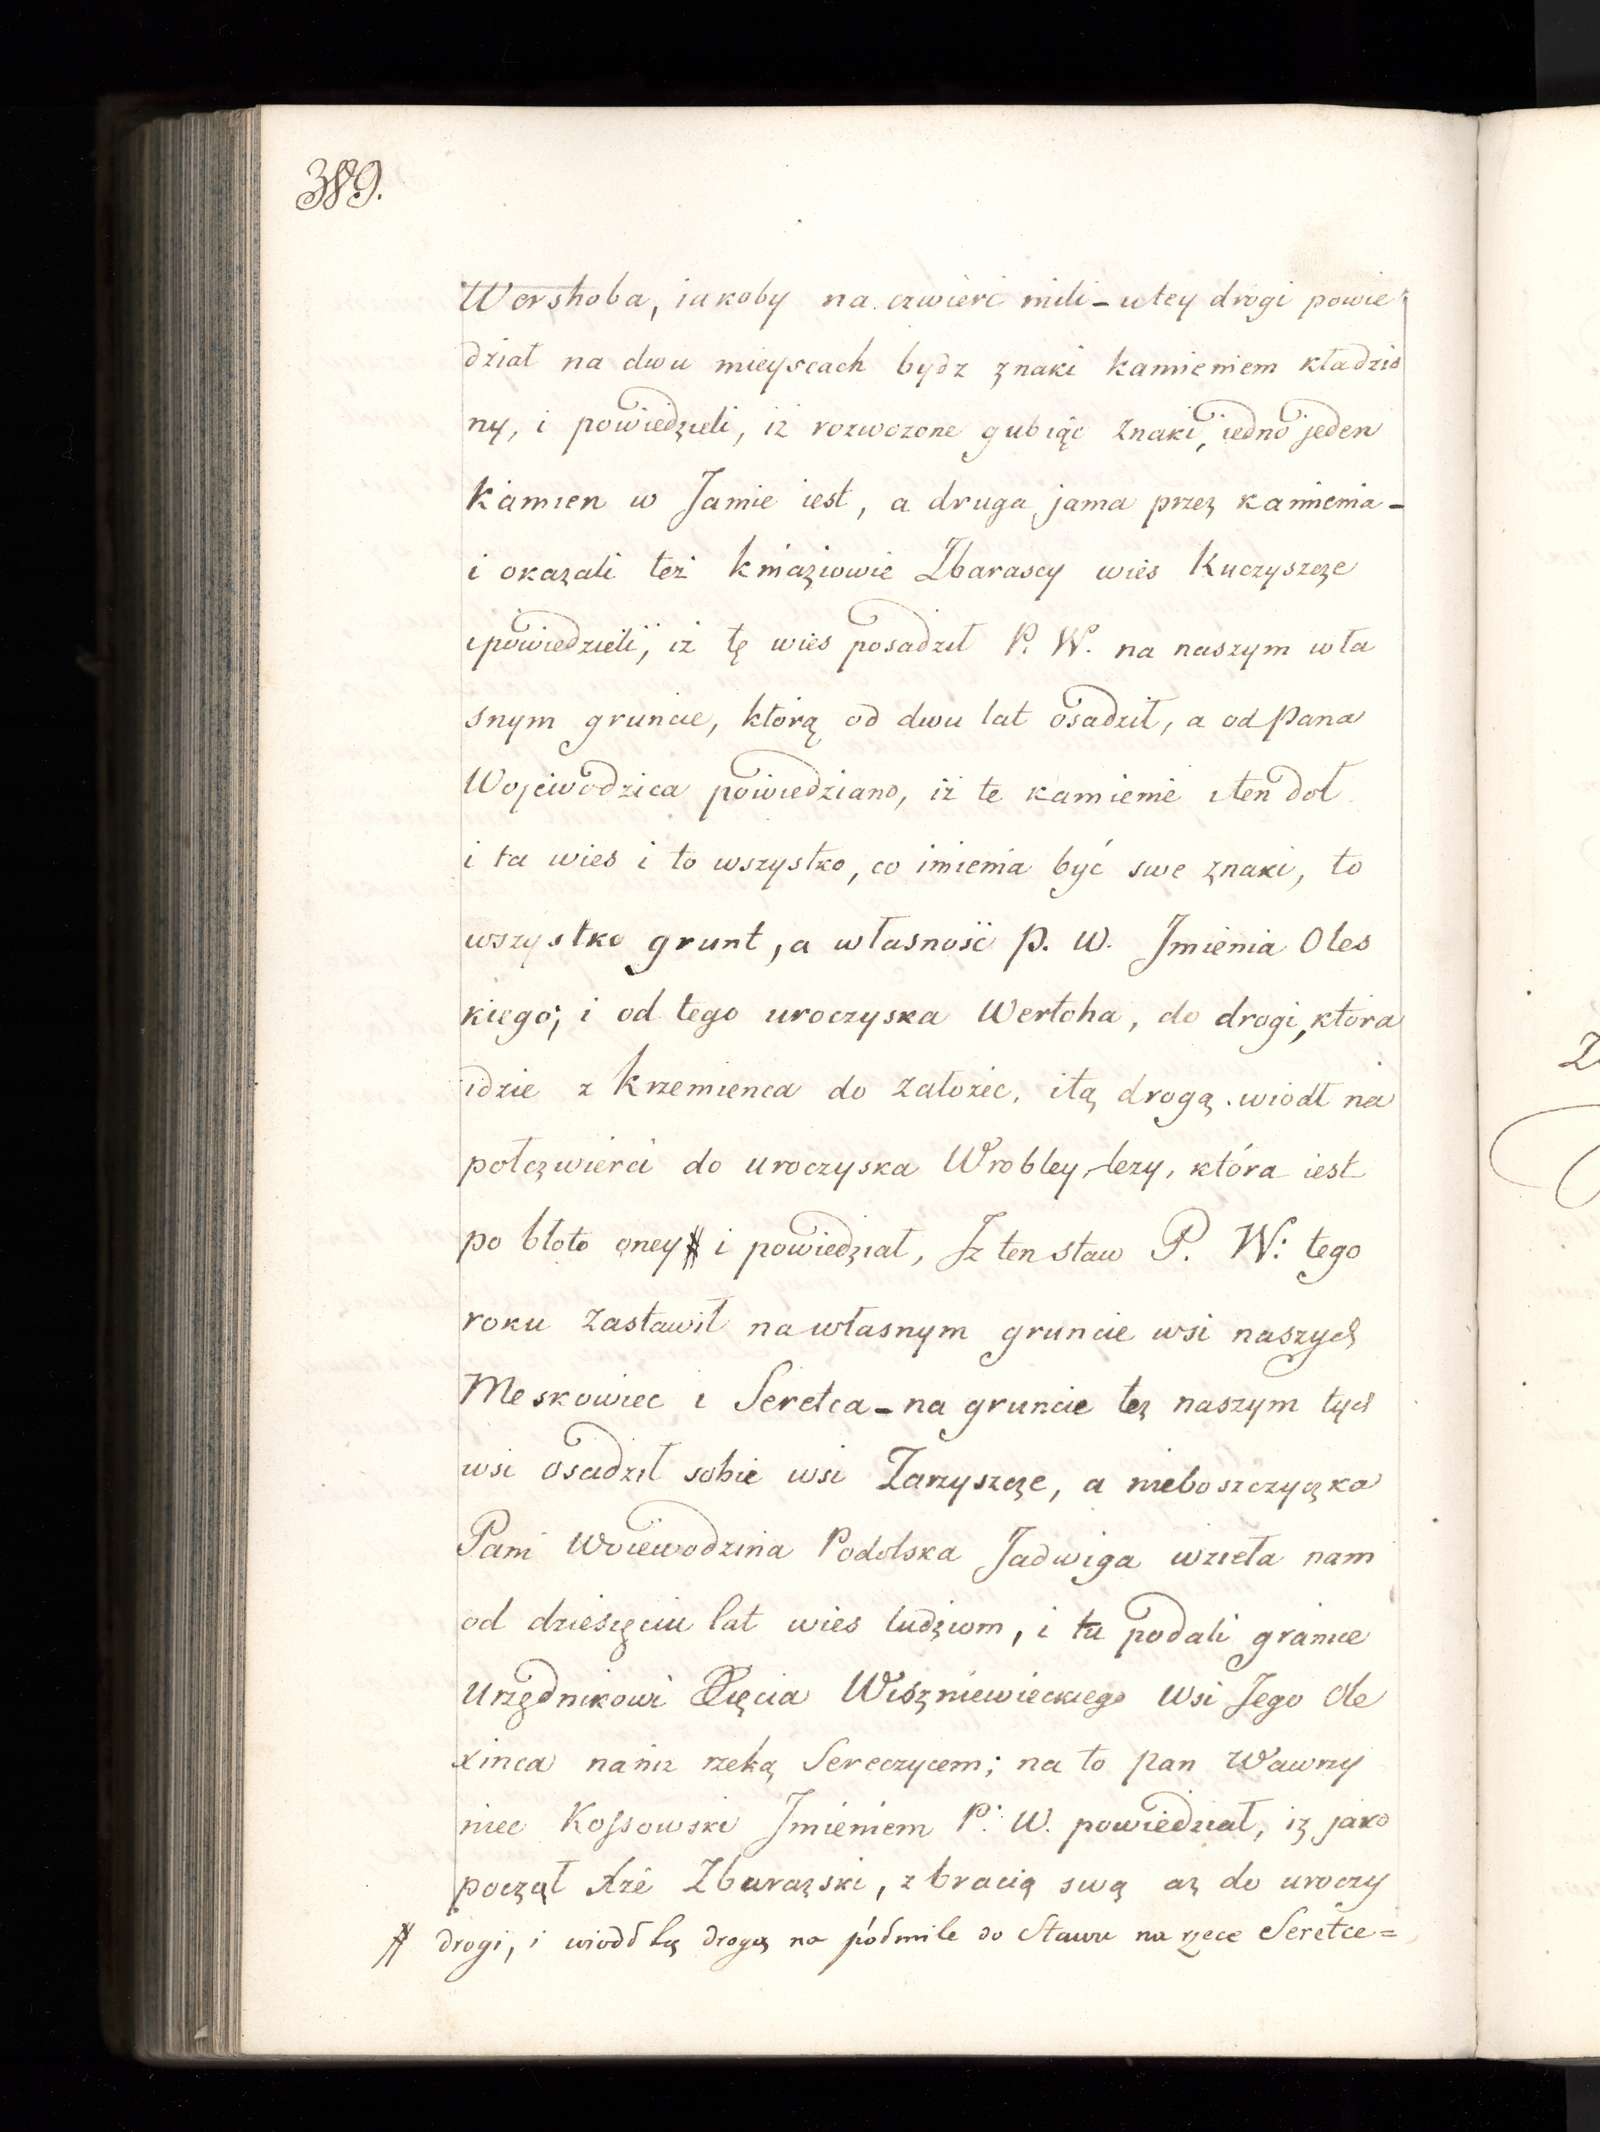 389.
Wershoba, iakoby na czwierć mili - utey drogi powie
dział na dwu mieyscach bydz znaki kamieniem kładzio
ny, i powiedzieli, iż rozwozone gubiąc znaki, iedno jeden
Kamień w Jamie iest, a druga jama przez kamienia -
i okazali też kniaziowie Zbarascy wies Kuczyszcze
i powiedzieli, iż tę wies posadził P. W. na naszym wła
snym gruncie, którą od dwu lat osadził, a od Pana
Wojewodzica powiedziano, iż te kamienie i ten doł
i ta wies i to wszystko, co imienia być swe znaki, to
wszystko grunt, a własność P. W. Jmienia Oles
kiego; i od tego uroczyska Wertoha, do drogi, która
idzie z Krzemienca do Załoziec, i tą drogą wiodł na
połczwierci do uroczyska Wrobley-lezy, która iest
po błoto oney # i powiedział, Jz ten staw P. W: tego
roku zastawił na własnym gruncie wsi naszych
Meskowiec i Seretca - na gruncie tez naszym tych
wsi osadził sobie wsi Zarzyszcze, a nieboszczyczka
Pani Woiewodzina Podolska Jadwiga wzieła nam
od dziesięciu lat wies ludziom, i tu podali granice
Urzędnikowi Xięcia Wiszniewieckiego Wsi Jego Ole
xinca rzeką Sereczycem; na to pan Wawrzy
niec Kossowski Jmieniem P. W. powiedział, iz jako
począł Xze Zbarazski, z bracią swą az do uroczy
# drogi, i wiódł tą drogą na półmile do Stawu na rzece Seretce =